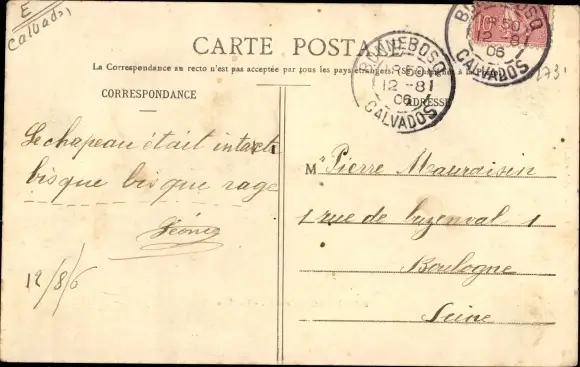 E
Calvados
CARTE POSTALE
La Correspondance au recto n'est pas acceptée par tous les pays étrangers. (Se renseigner à la Poste)
CORRESPONDANCE
ADRESSE
BONNEBOSQ
12 -8
06
CALVADOS
BONNEBOSQ
12 -8
06
CALVADOS
Le chapeau était intact
bisque bisque rage
12/8/6
M Pierre
1 rue de Buzenval 1
Boulogne
Seine